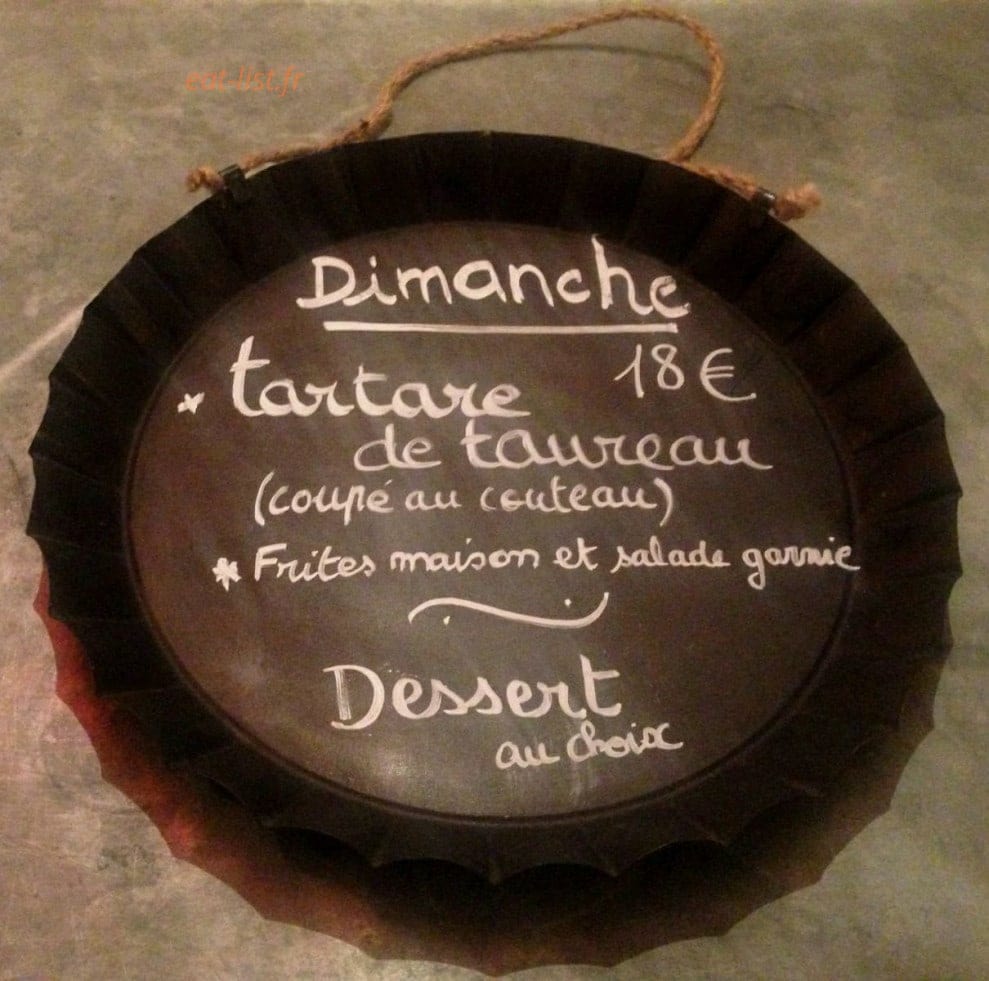 eat-list.fr
Dimanche
18€
* tartare
de taureau
(coupé au couteau)
* Frites maison et salade garnie
Dessert
au choix